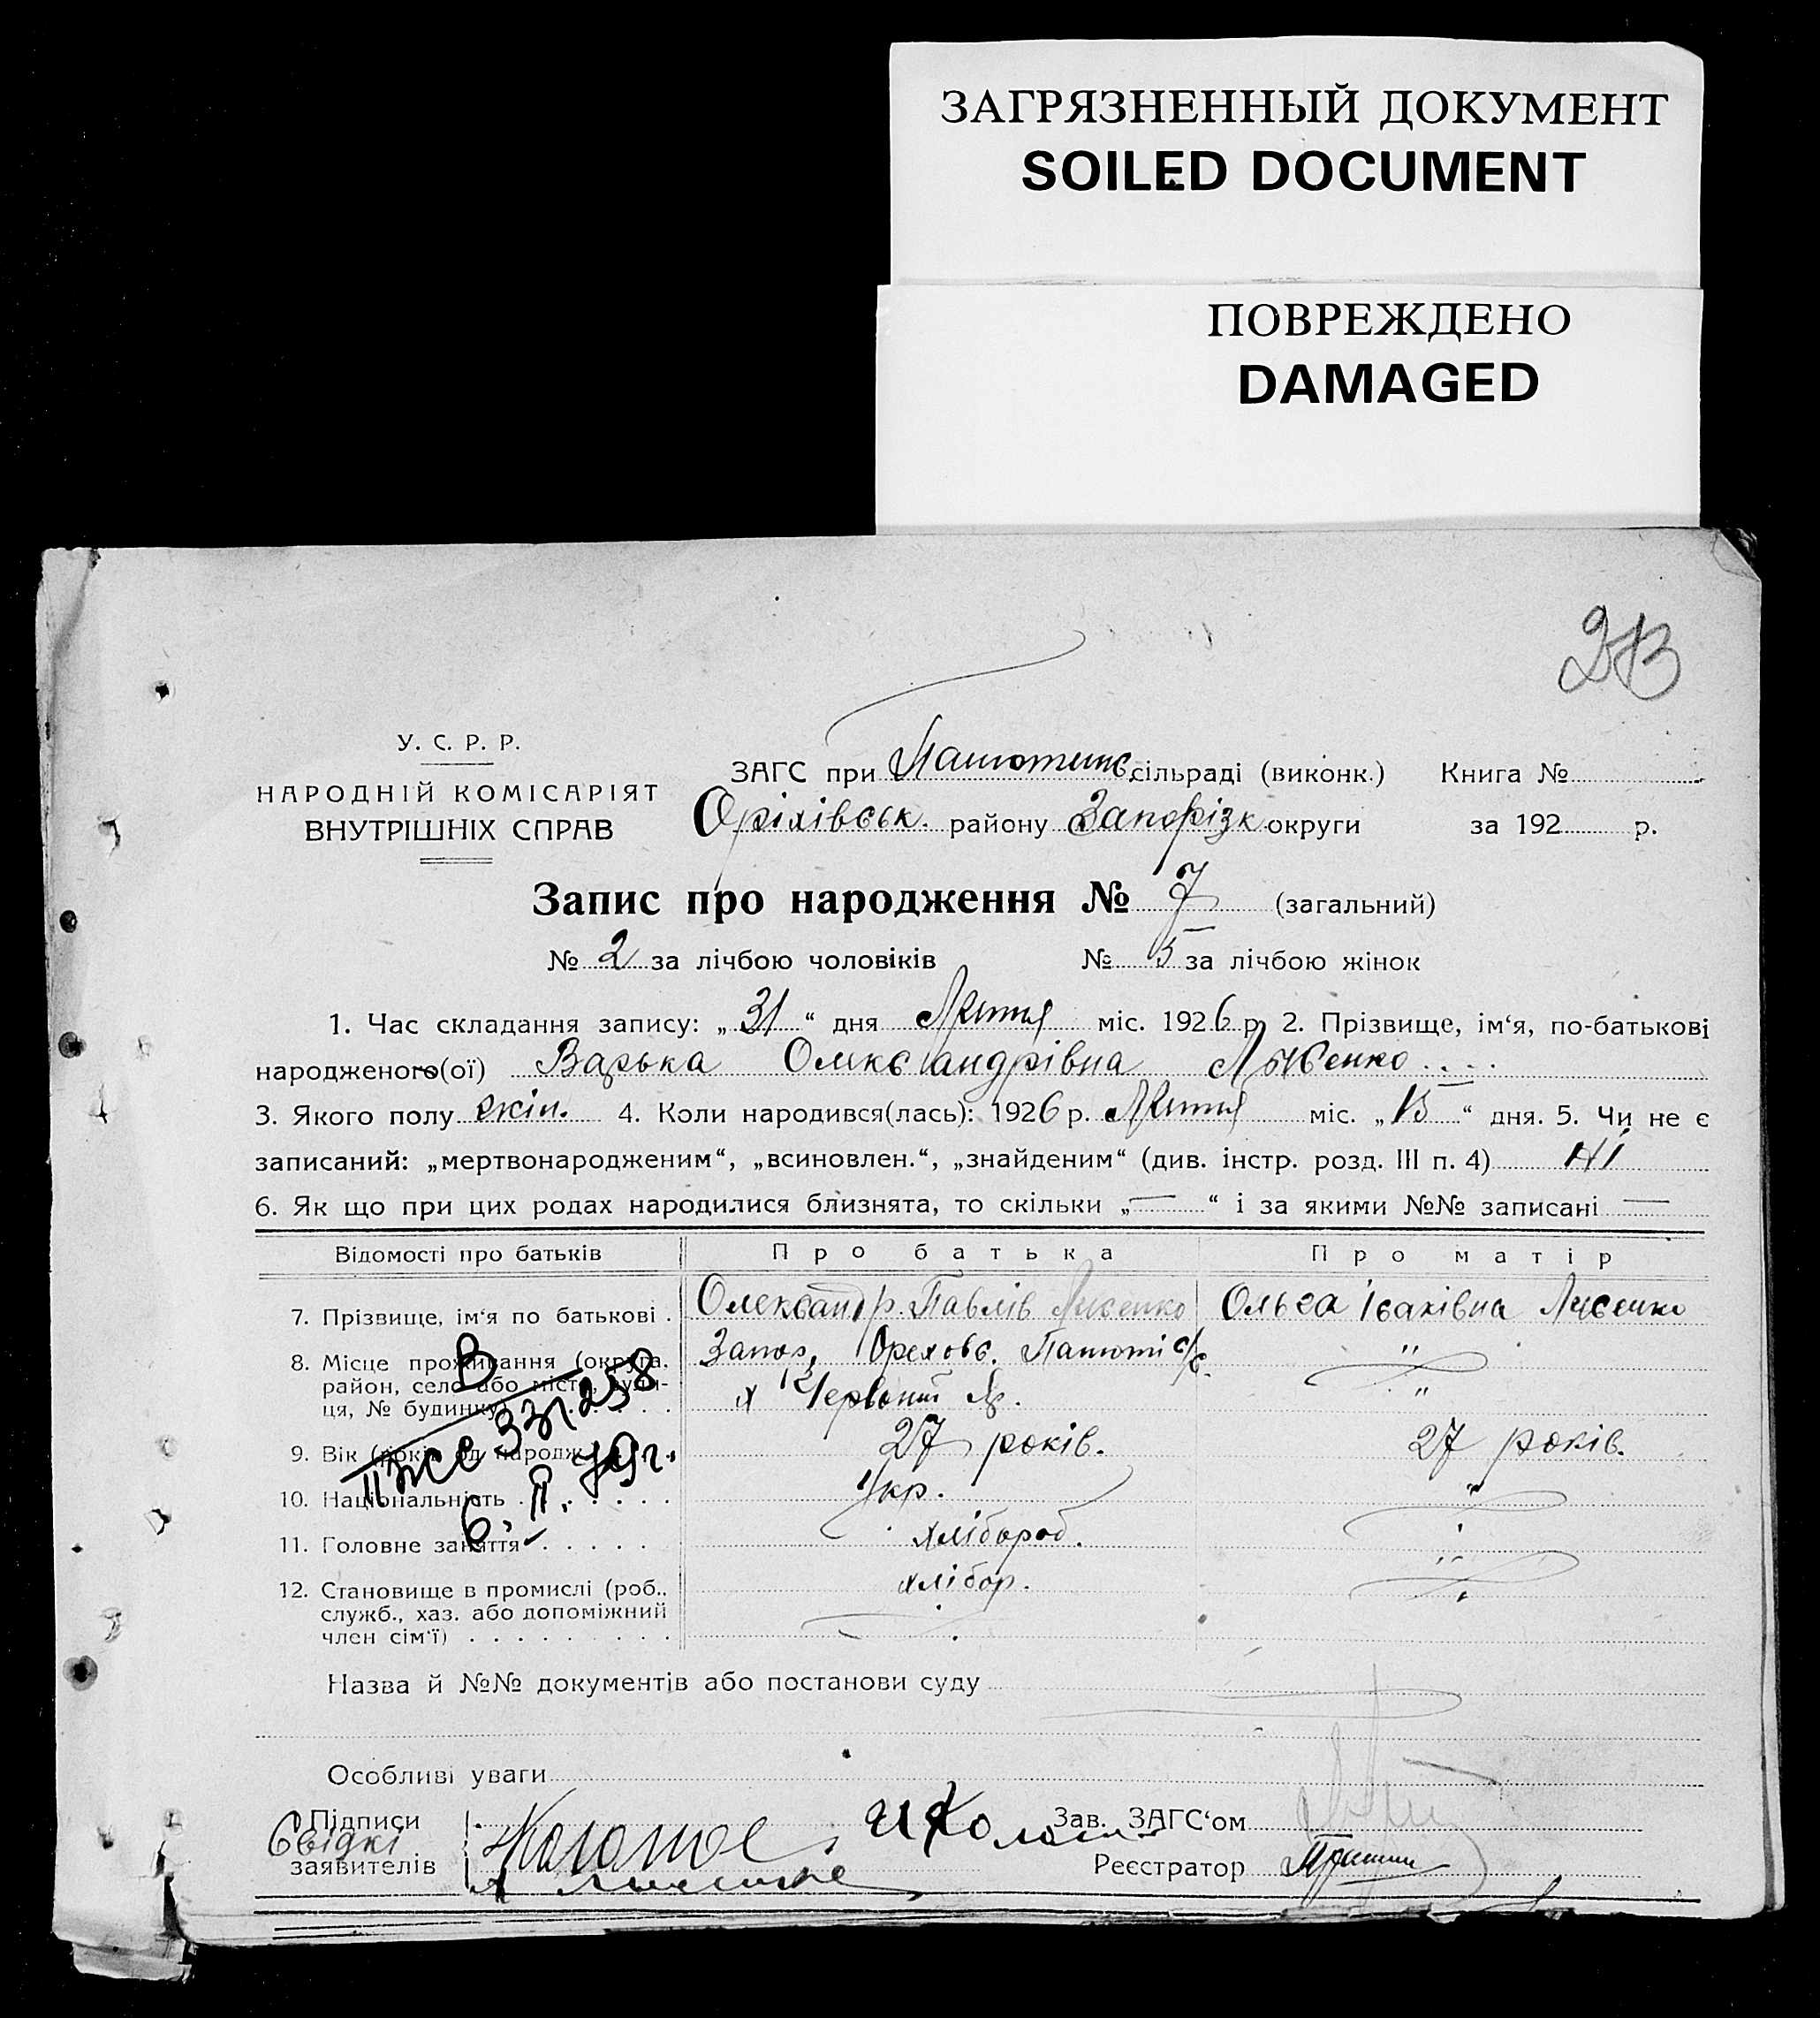 ЗАГРЯЗНЕННЫЙ ДОКУМЕНТ
SOILED DOCUMENT
ПОВРЕЖДЕНО
DAMAGED
У. С. Р. Р.
НАРОДНІЙ КОМІСАРІЯТ
ВНУТРІШНІХ СПРАВ
ЗАГС при сільраді (виконк.) Книга №
Оріхівськ. району Запорізк округи за 192 р.
Запис про народження № 7 (загальний)
№ 2 за лічбою чоловіків № 5 за лічбою жінок
1. Час складання запису: „ 31 “ дня міс. 1926 р 2. Прізвище, ім‘я, по-батькові
народженого(ої) Варька Олександрівна Лисенко
3. Якого полу жін. 4. Коли народився(лась): 1926 р. міс. „ “ дня. 5. Чи не є
записаний: „мертвонародженим“, „всиновлен.“, „знайденим“ (див. інстр. розд. III п. 4) Ні
6. Як що при цих родах народилися близнята, то скільки „ — “ і за якими №№ записані —
Відомості про батьків Про батька Про матір
7. Прізвище, ім‘я по батькові . Олександр. Павлів Лисенко Ольга Ісаківна Лисенко
8. Місце проживання (округа, Запоз, Ореховс. с/с. "
район, село або місто, вули-
ця, № будинку) х Червоний Яр. "
9. Вік (років од народж.) 27 років. 27 років.
10. Національність . . . . . . . Укр. "
11. Головне заняття . . . . . хлібороб. "
12. Становище в промислі (роб., хлібор. "
служб., хаз. або допоміжний
член сім‘ї) . . . . . . . . .
В
331258
6. II. 79г.
Назва й №№ документів або постанови суду
Особливі уваги
Підписи Зав. ЗАГС‘ом
Свідкі
заявителів Реєстратор